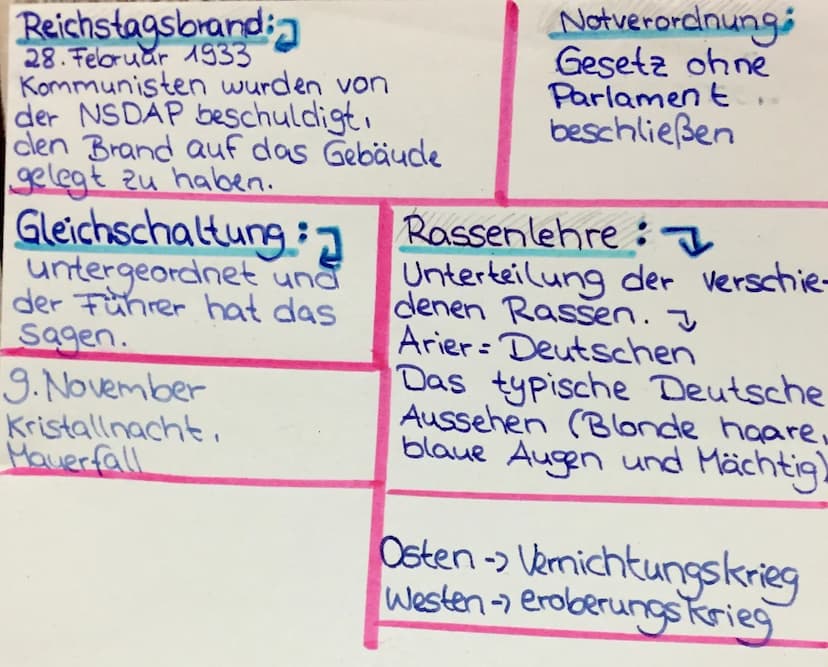 Reichstagsbrand:
28. Februar 1933
Kommunisten wurden von
der NSDAP beschuldigt,
den Brand auf das Gebäude
gelegt zu haben.
Notverordnung:
Gesetz ohne
Parlament
beschließen
Gleichschaltung:
untergeordnet und
der Führer hat das
sagen.
Rassenlehre:
Unterteilung der verschie-
denen Rassen.
Arier = Deutschen
Das typische Deutsche
Aussehen (Blonde haare,
blaue Augen und Mächtig)
9. November
Kristallnacht,
Mauerfall
Osten -> Vernichtungskrieg
Westen -> eroberungskrieg